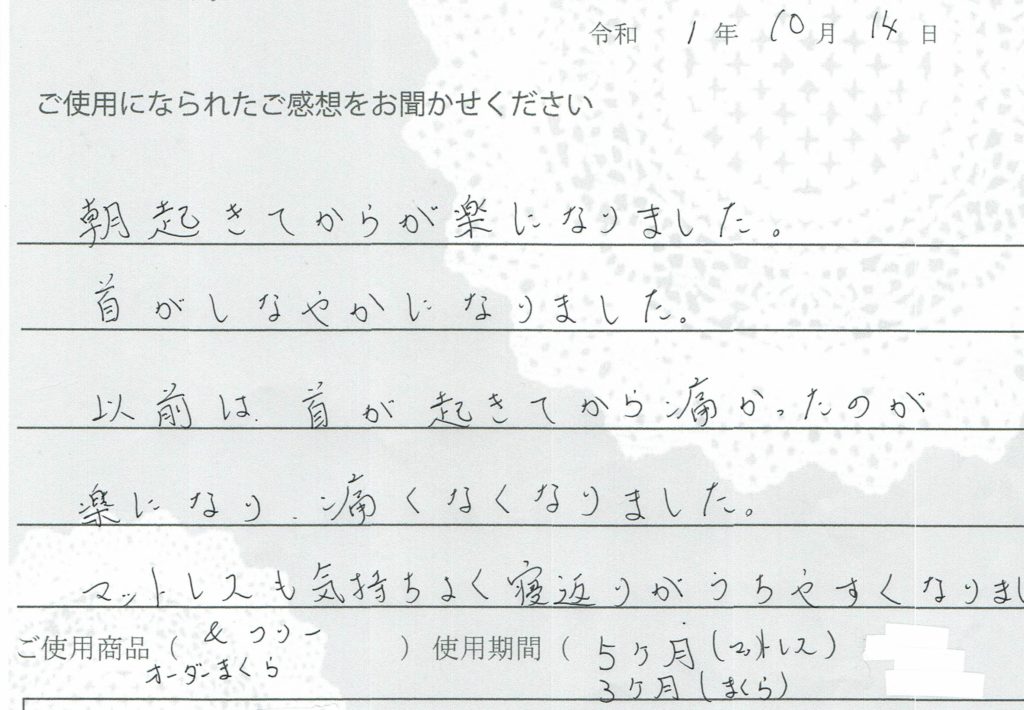 令和 1 年 10 月 14 日
ご使用になられたご感想をお聞かせください
朝起きてからが楽になりました。
首がしなやかになりました。
以前は、首が起きてから痛かったのが
楽になり、痛くなくなりました。
マットレスも気持ちよく寝返りがうちやすくなりまし
ご使用商品（ &フリー ） 使用期間（ 5ケ月（マットレス）
オーダーまくら 3ケ月（まくら）